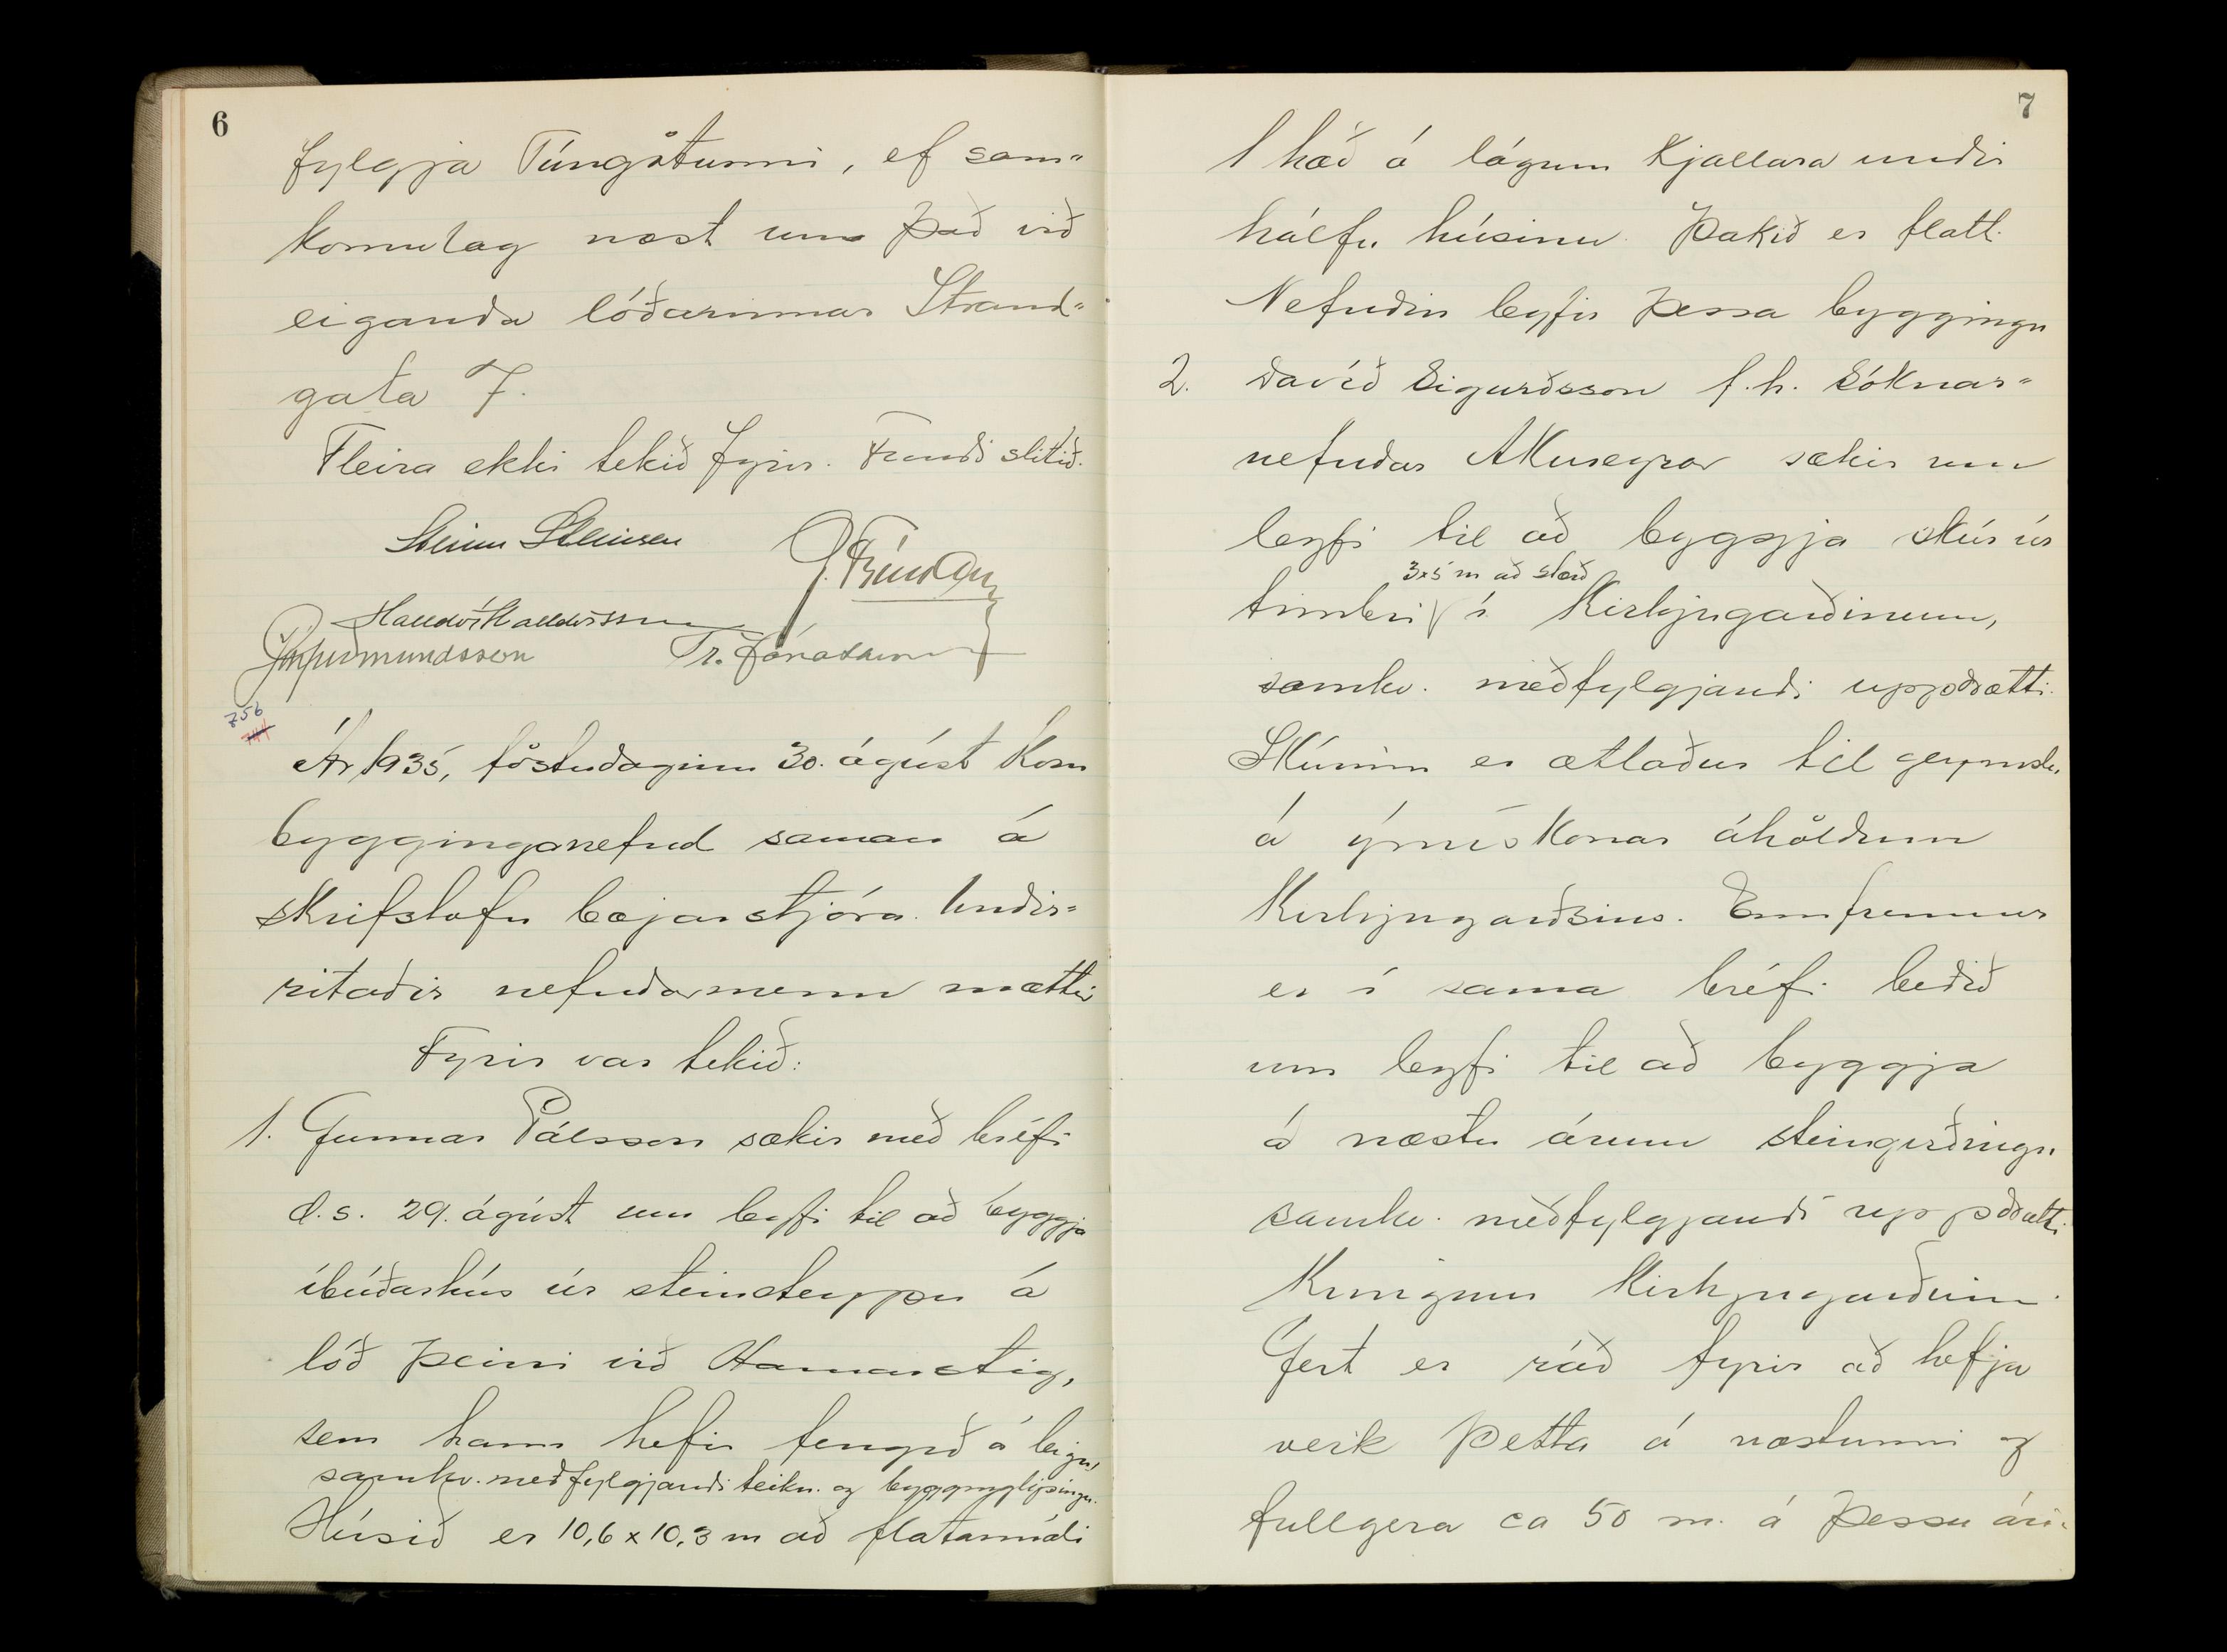 6
fylgja Túngötunni, ef sam„
komulag næst um það við
eiganda lóðarinnar Strand„
gata 7.
Fleira ekki tekið fyrir. Fundi slitið.
Steinn Steinsen
Halldór Halldórsson
Tr. Jónatansson
756
741
Ár 1935, föstudaginn 30. ágúst kom
bygginganefnd saman á
skrifstofu bæjarstjóra. Undir=
ritaðir nefndarmenn mættir
Fyrir var tekið:
1. Gunnar Pálsson sækir með bréfi
d.s. 29. ágúst um leyfi til að byggja
íbúðarhús úr steinsteypu á
lóð þeirri við Hamarstig,
sem hann hefir fengið á leigu,
samkv. meðfylgjandi teikn. og byggingarlýsingu.
Húsið er 10,6 x 10,3 m að flatarmáli
7
1 hæð á lágum kjallara undir
hálfu húsinu. Þakið er flatt.
Nefndin leyfir þessa byggingu
2. Davíð Sigurðsson f.h. Sóknar=
nefndar Akureyrar sækir um
leyfi til að byggja skúr úr
3x5 m að stærð
timbri í Kirkjugarðinum,
samkv. meðfylgjandi uppdrætti.
Skúrinn er ætlaður til geymslu
á ýmiskonar áhöldum
Kirkjugarðsins. Ennfremur
er í sama bréfi beðið
um leyfi til að byggja
á næstu árum steingirðingu
samkv. meðfylgjandi uppdrætti
kringum kirkjugarðinn.
Gert er ráð fyrir að hefja
verk þetta á næstunni og
fullgera ca 50 m. á þessu ári.